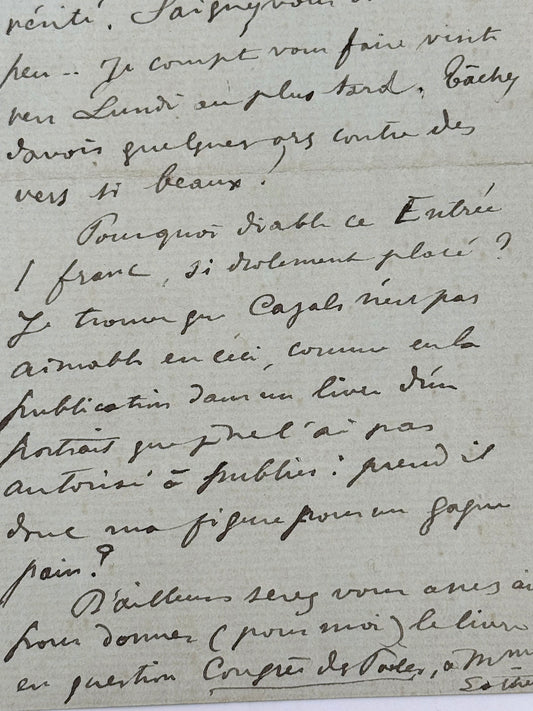 vérité. Soignez vous
peu .. Je compt vous faire visite
vers Lundi au plus tard. Tâchez
d'avoir quelques ors contre des
vers si beaux !
Pourquoi diable ce Entrée
1 franc, si drolement placé ?
Je trouve que Cazals n'est pas
aimable en ceci, comme en la
publication dans un livre d'un
portrait que je ne l'ai pas
autorisé à publier : prend il
donc ma figure pour un gagne
pain ?
D'ailleurs serez vous assez ai
pour donner (pour moi) le livre
en question Congrès des Poètes, à Mme